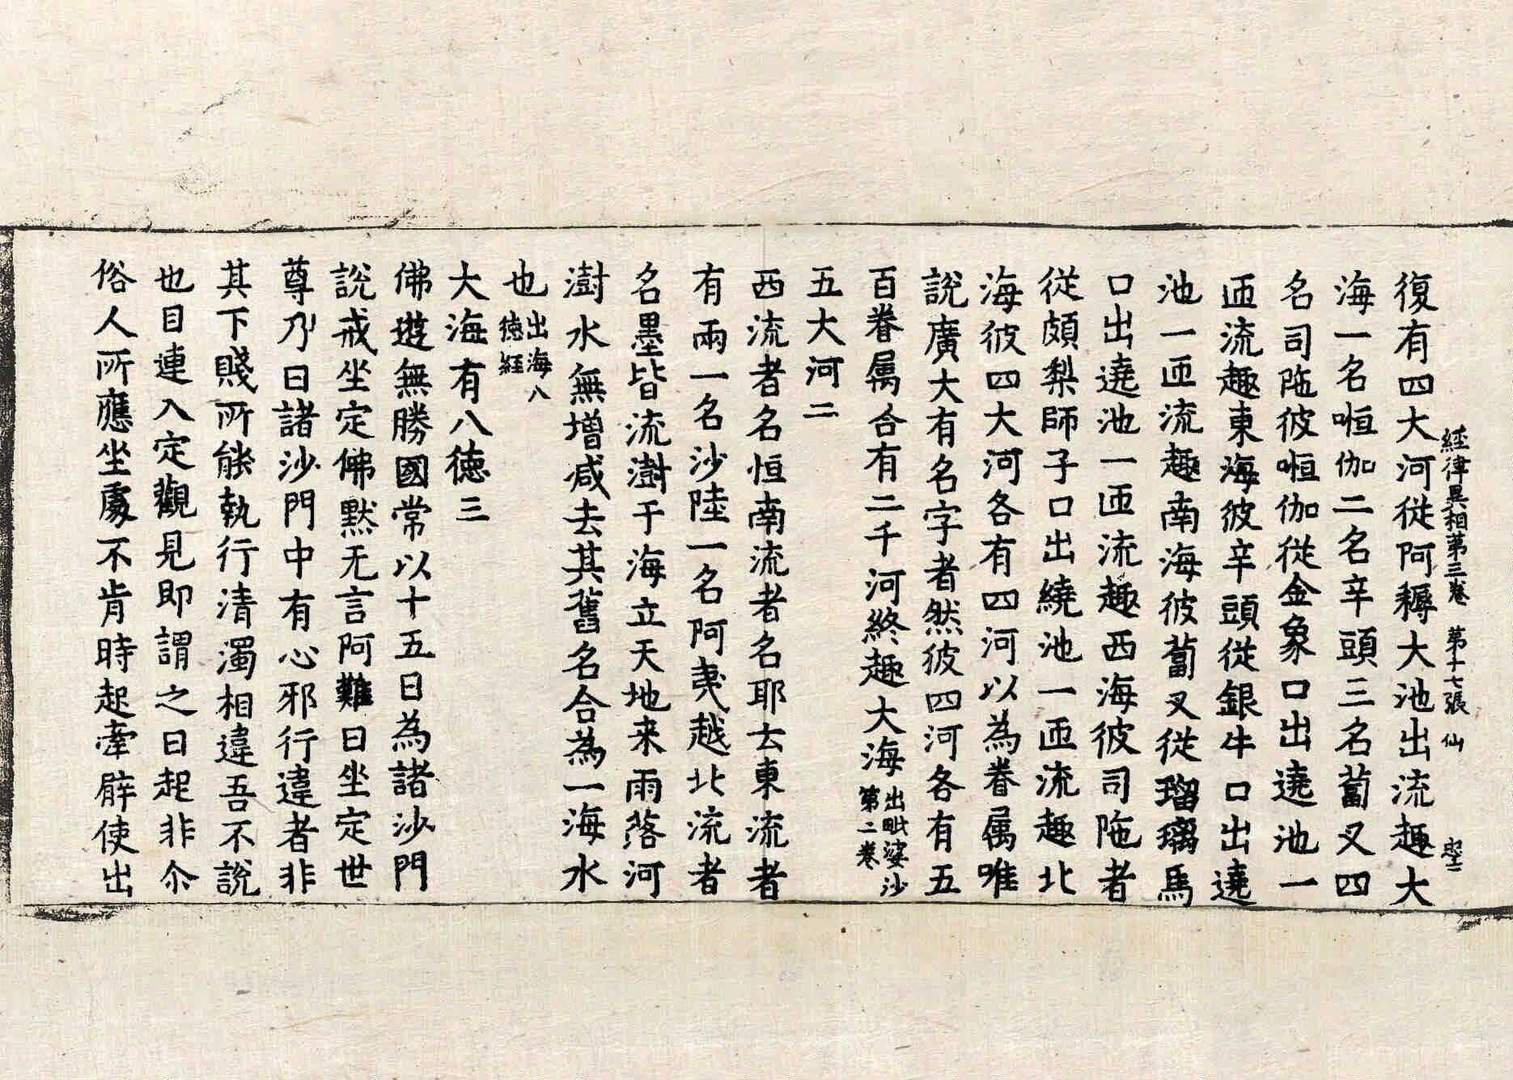 經律異相第三卷 第十七張 仙
復有四大河從阿耨大池出流趣大
海一名㗌伽二名辛頭三名蔔叉四
名司陁彼㗌伽從金象口出遶池一
迊流趣東海彼辛頭從銀牛口出遶
池一迊流趣南海彼蔔叉從瑠璃馬
口出遶池一迊流趣西海彼司陁者
從頗梨師子口出繞池一迊流趣北
海彼四大河各有四河以為眷属唯
說廣大有名字者然彼四河各有五
百眷属合有二千河終趣大海出毗婆沙第二卷
五大河二
西流者名恒南流者名耶云東流者
有兩一名沙陸一名阿夷越北流者
名墨皆流澍于海立天地来雨落河
澍水無增减去其舊名合為一海水
也出海八徳経
大海有八徳三
佛遊無勝國常以十五日為諸沙門
說戒坐定佛黙无言阿難曰坐定世
尊乃曰諸沙門中有心邪行違者非
其下賤所能執行清濁相違吾不說
也目連入定觀見即謂之曰起非尒
俗人所應坐處不肯時起牽臂使出